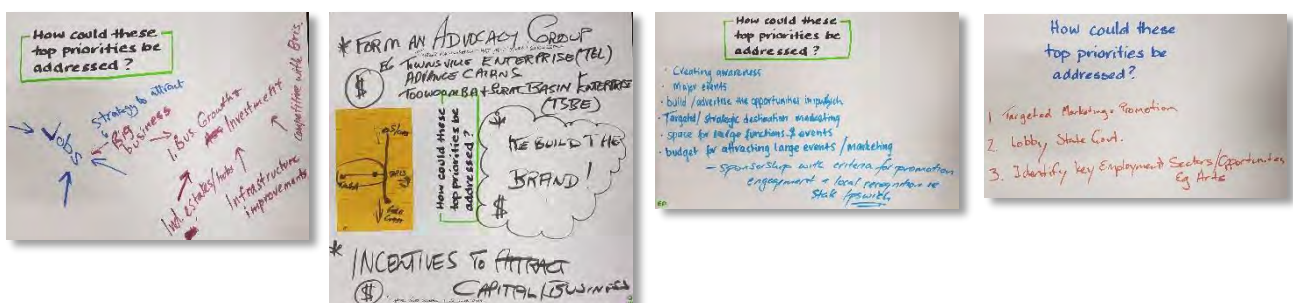 How could these
top priorities be
addressed?
Strategy to attract
Big
business
Jobs
1. Bus. Growth
Investment
competitive with Bris.
Ind. estates/hubs
Infrastructure
improvements
* FORM AN ADVOCACY GROUP
EG TOWNSVILLE ENTERPRISE (TEL)
ADVANCE CAIRNS
TOOWOOMBA + SURAT BASIN ENTERPRISE
(TSBE)
$
How could these
top priorities be
addressed?
$
REBUILD THE
BRAND!
$
* INCENTIVES TO ATTRACT
CAPITAL/BUSINESS
$
How could these
top priorities be
addressed?
· Creating awareness
· Major events
· build/advertise the opportunities in Ipswich
· Targeted/strategic destination marketing
· space for large functions & events
· budget for attracting large events/marketing
- sponsorship with criteria for promotion
engagement & local recognition ie
State Ipswich
How could these
top priorities be
addressed?
1 Targeted Marketing & Promotion
2. Lobby State Govt.
3. Identify Key Employment Sectors/Opportunities
Eg Arts